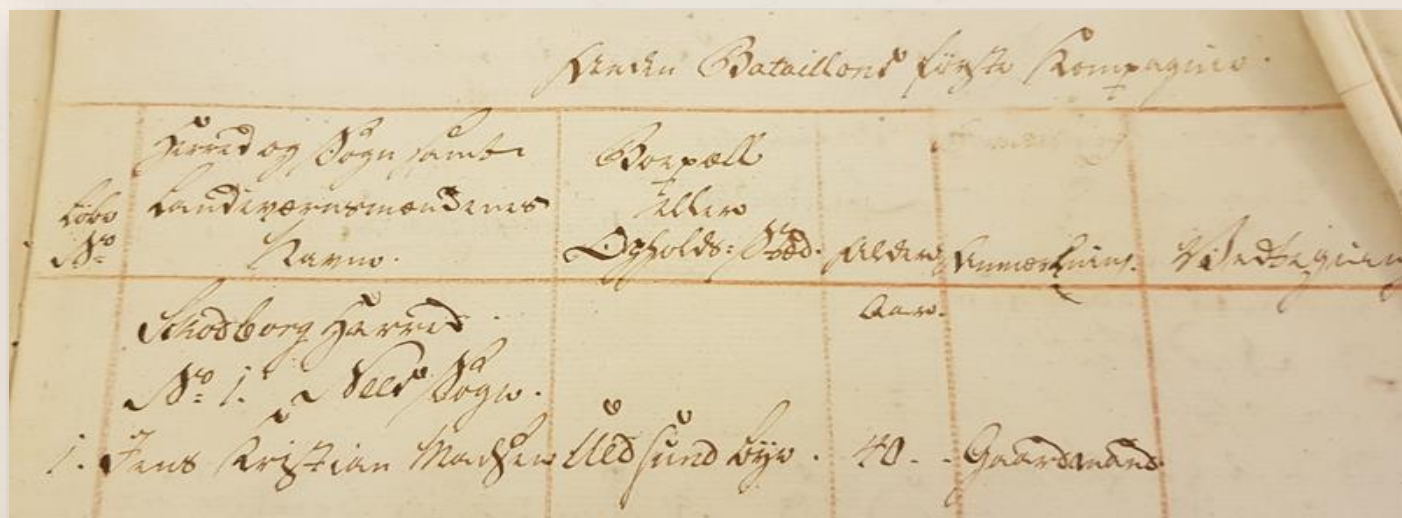 Anden Bataillons første Kompagnie.
Løbe
No
Herred og Sogn samt
Landeværnsmændenes
Navne.
Bopæll
eller
Opholds: Stæd.
Alder
Anmærkning.
Aar.
Skodborg Herred.
No: 1. Sogn.
1. Jens Kristian Madsen Uldsund bÿe. 40. Gaardmand